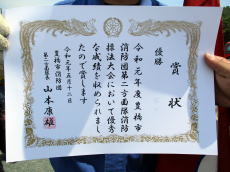 賞状
優勝
令和元年度豊橋市
消防団第二方面隊消防
操法大会において優秀
な成績を収められまし
たので賞します
令和元年五月十二日
豊橋市消防団
第二方面隊長
山本康雄